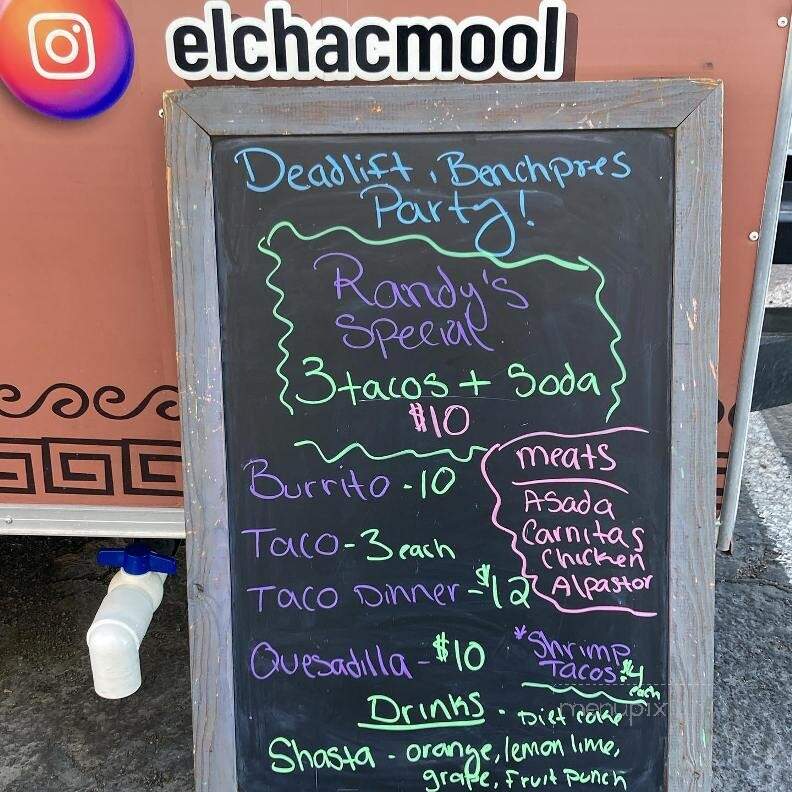 elchacmool
Deadlift, Benchpres
Party!
Randy's
Special
3 tacos + Soda
$10
Burrito - 10
Taco - 3 each
Taco Dinner - $12
Quesadilla - $10
meats
Asada
Carnitas
Chicken
Alpastor
*Shrimp
Tacos $4
each
Drinks - Diet coke
Shasta - orange, lemon lime,
grape, Fruit punch
menupix